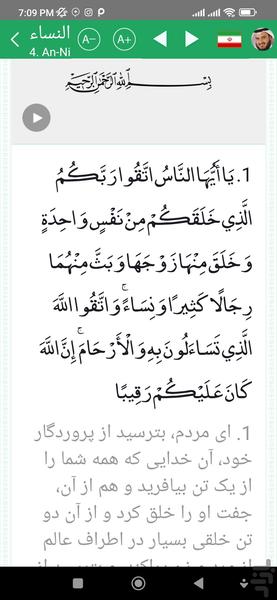 7:09 PM
النساء
4. An-Ni
A−
A+
بسم الله الرحمن الرحيم
1. يَا أَيُّهَا النَّاسُ اتَّقُوا رَبَّكُمُ
الَّذِي خَلَقَكُمْ مِنْ نَفْسٍ وَاحِدَةٍ
وَخَلَقَ مِنْهَا زَوْجَهَا وَبَثَّ مِنْهُمَا
رِجَالًا كَثِيرًا وَنِسَاءً ۚ وَاتَّقُوا اللَّهَ
الَّذِي تَسَاءَلُونَ بِهِ وَالْأَرْحَامَ ۚ إِنَّ اللَّهَ
كَانَ عَلَيْكُمْ رَقِيبًا
1. ای مردم، بترسید از پروردگار
خود، آن خدایی که همه شما را
از یک تن بیافرید و هم از آن،
جفت او را خلق کرد و از آن دو
تن خلقی بسیار در اطراف عالم